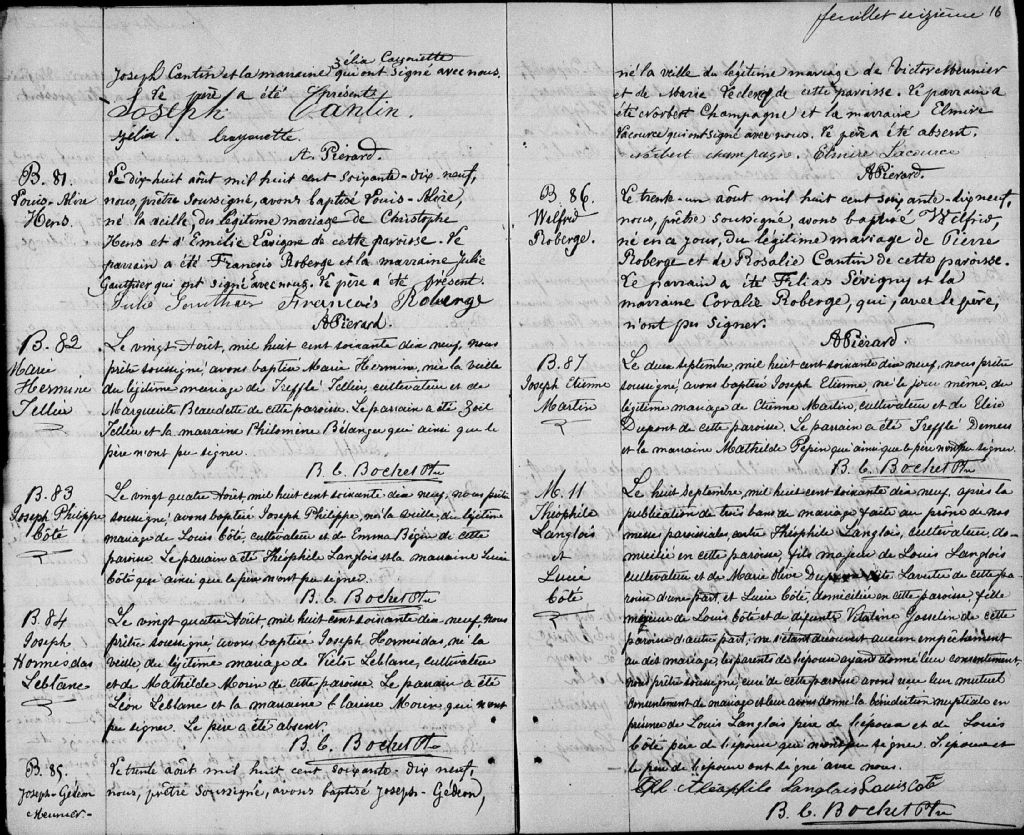 feuillet seizième 16
Zélia Cayouette
Joseph Cantin et la marraine qui ont signé avec nous.
Le père a été présent.
Joseph Cantin.
Zélia Cayouette.
A. Piérard.
B. 81.
Louis-Alvré
Hens.
Le dix-huit août mil huit cent soixante-dix neuf,
nous, prêtre soussigné, avons baptisé Louis-
né la veille, du légitime mariage de Christophe
Hens et d'Emilie Lavigne de cette paroisse. Le
parrain a été François Roberge et la marraine Julie
Gauthier qui ont signé avec nous. Le père a été présent.
Julie Gauthier François Roberge
A Piérard.
B. 82
Marie
Hermine
Tellier
Le vingt Août, mil huit cent soixante dix neuf, nous
prêtre soussigné, avons baptisé Marie Hermine, née la veille
du légitime mariage de Trefflé Tellier, cultivateur et de
Marguerite Beaudette de cette paroisse. Le parrain a été Zoël
Tellier et la marraine Philomène Bélanger qui ainsi que le
père n'ont pu signer.
B. C. Bochet Ptre
B. 83
Joseph Philippe
Côté
Le vingt quatre Août, mil huit cent soixante dix neuf, nous prêtre
soussigné, avons baptisé Joseph Philippe, né la veille, du légitime
mariage de Louis Côté, cultivateur et de Emma Bégin de cette
paroisse. Le parrain a été Théophile Langlois et la marraine Lucie
Côté qui ainsi que le père n'ont pu signer.
B. C. Bochet Ptre
B. 84
Joseph
Hormisdas
Leblanc
Le vingt quatre Août, mil huit cent soixante dix neuf, nous
prêtre soussigné, avons baptisé Joseph Hormisdas, né la
veille, du légitime mariage de Victor Leblanc, cultivateur
et de Mathilde Morin de cette paroisse. Le parrain a été
Léon Leblanc et la marraine Clarisse Morin qui n'ont
pu signer. Le père a été absent.
B. C. Bochet Ptre
B. 85.
Joseph-Gédéon
Meunier.-
Le trente août mil huit cent soixante-dix neuf,
nous, prêtre soussigné, avons baptisé Joseph-Gédéon,
né la veille du légitime mariage de Victor Meunier
et de Marie Leclerc de cette paroisse. Le parrain a
été Norbert Champagne et la marraine Elmire
Lacource qui ont signé avec nous. Le père a été absent.
Norbert champagne. Elmire Lacource
A Piérard.
B. 86
Wilfrid
Roberge.
Le trente-un août mil huit cent soixante-dix neuf,
nous, prêtre soussigné, avons baptisé Wilfrid,
né en ce jour, du légitime mariage de Pierre
Roberge et de Rosalie Cantin de cette paroisse.
Le parrain a été Félias Sévigny et la
marraine Coralie Roberge, qui, avec le père,
n'ont pu signer.
A Piérard.
B. 87
Joseph Etienne
Martin
Le deux septembre, mil huit cent soixante dix neuf, nous prêtre
soussigné, avons baptisé Joseph Etienne, né le jour même, du
légitime mariage de Etienne Martin, cultivateur et de
Dupont de cette paroisse. Le parrain a été Trefflé Demers
et la marraine Mathilde Pepin qui ainsi que le père n'ont pu signer.
B. C. Bochet Ptre
M. 11
Théophile
Langlois
et
Lucie
Côté
Le huit Septembre, mil huit cent soixante dix neuf, après la
publication de trois bans de mariage faite au prône de nos
messes paroissiales, entre Théophile Langlois, cultivateur, do-
micilié en cette paroisse, fils majeur de Louis Langlois
cultivateur et de Marie Olive de cette pa-
roisse d'une part, et Lucie Côté, domiciliée en cette paroisse, fille
mineure de Louis Côté et de défunte Vitaline Gosselin de cette
paroisse d'autre part; ne s'étant découvert aucun empêchement
au dit mariage, les parents de l'épouse ayant donné leur consentement,
nous prêtre soussigné, curé de cette paroisse avons reçu leur mutuel
consentement de mariage et leur avons donné la bénédiction nuptiale en
présence de Louis Langlois père de l'époux et de Louis
Côté père de l'épouse qui n'ont pu signer. L'époux et
le père de l'épouse ont signé avec nous.
Théophile Langlois Louis Coté
B. C. Bochet Ptre